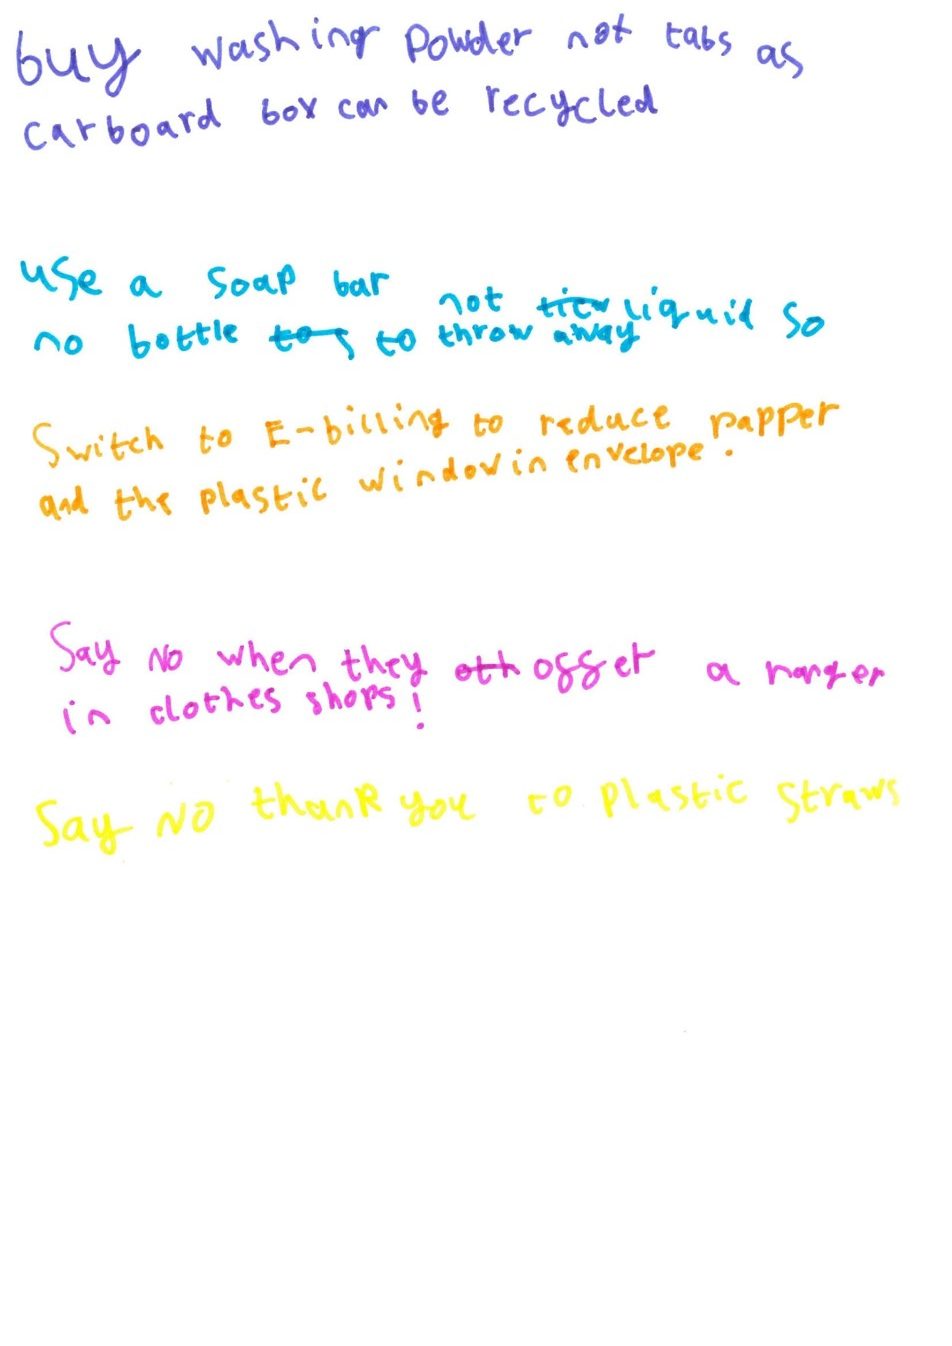 buy washing powder not tabs as
carboard box can be recycled
use a soap bar not liquid so
no bottle to throw away
Switch to E-billing to reduce papper
and the plastic window in envelope.
Say No when they offer a hanger
in clothes shops!
Say No thank you to plastic straws